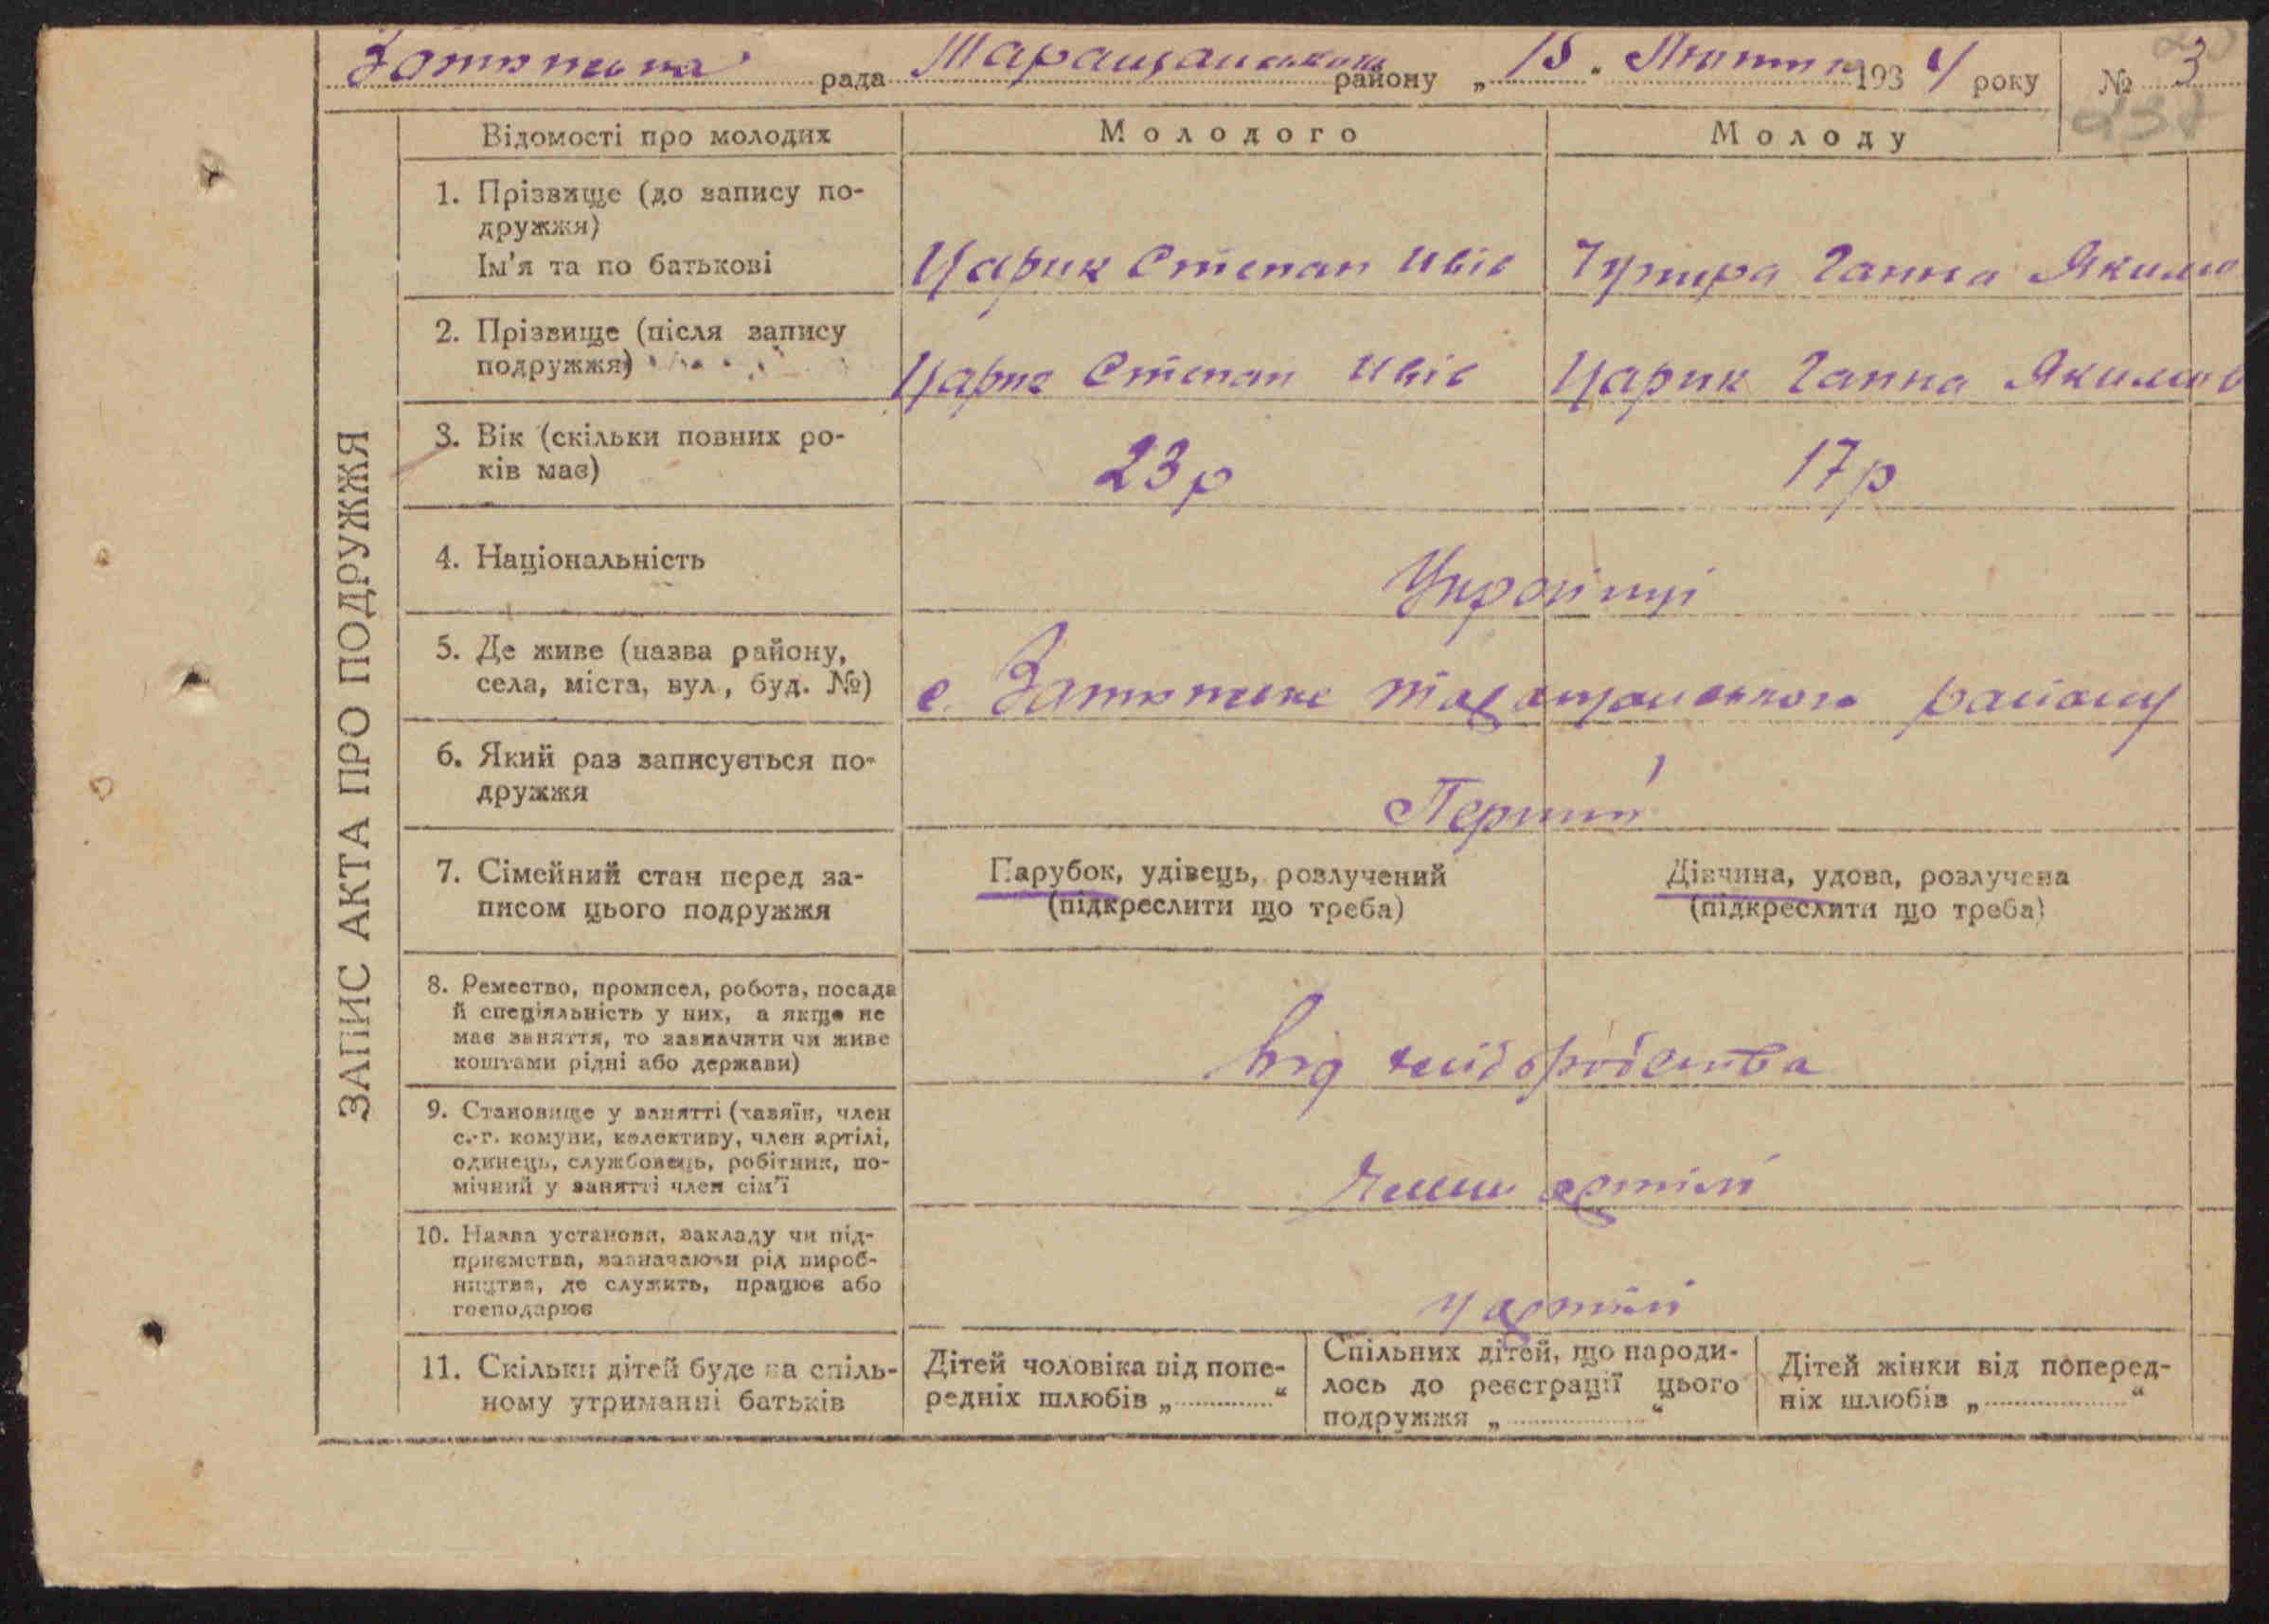 рада Таращанського району „15" Лютня 1934 року № 3
237
ЗАПИС АКТА ПРО ПОДРУЖЖЯ
Відомості про молодих
Молодого
Молоду
1. Прізвище (до запису по-
дружжя)
Ім'я та по батькові
Царик Степан Ивіс
Ганна Якимо
2. Прізвище (після запису
подружжя)
Царик Степан Ивіс
Царик Ганна Якимов
3. Вік (скільки повних ро-
ків має)
23р
17р
4. Національність
Україїнці
5. Де живе (назва району,
села, міста, вул., буд. №)
с. Таращанського району
6. Який раз записується по-
дружжя
Перший
7. Сімейний стан перед за-
писом цього подружжя
Парубок, удівець, розлучений
(підкреслити що треба)
Дівчина, удова, розлучена
(підкреслити що треба)
8. Ремество, промисел, робота, посада
й спеціяльність у них, а якщо не
має заняття, то зазначити чи живе
коштами рідні або держави)
від
9. Становище у занятті (хазяїн, член
с.-г. комуни, колективу, член артілі,
одинець, службовець, робітник, по-
мічний у занятті член сім'ї
члени артілі
10. Назва установи, закладу чи під-
приємства, зазначаючи рід вироб-
ництва, де служить, працює або
господарює
у артілі
11. Скільки дітей буде на спіль-
ному утриманні батьків
Дітей чоловіка від попе-
редніх шлюбів „ “
Спільних дітей, що народи-
лось до реєстрації цього
подружжя „ “
Дітей жінки від поперед-
ніх шлюбів „ “